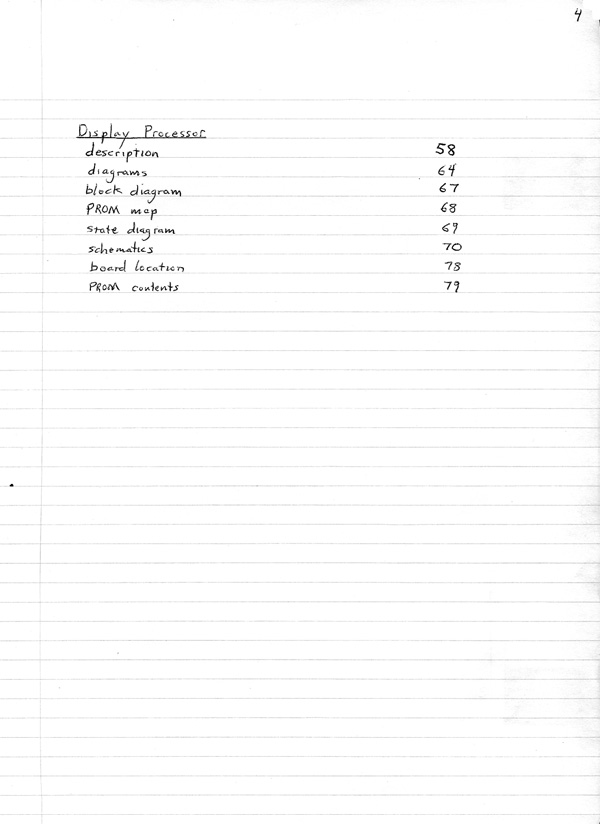 4
Display Processor
description 58
diagrams 64
block diagram 67
PROM map 68
state diagram 69
schematics 70
board location 78
PROM contents 79